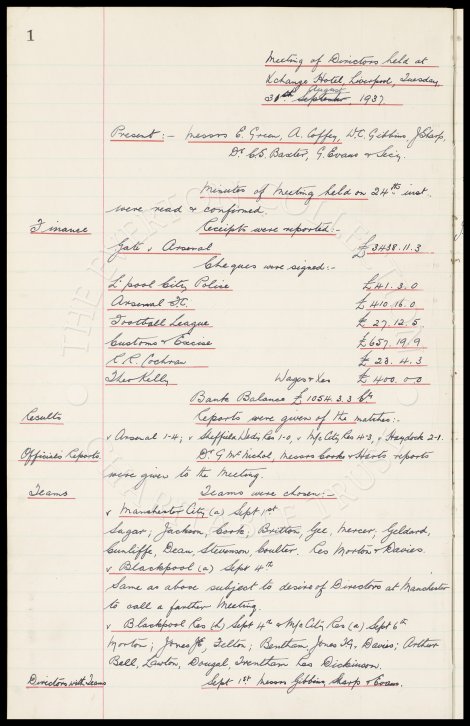 1
Meeting of Directors held at
Xchange Hotel, Liverpool, Tuesday
31st August September 1937.
Present:- Messrs E. Green, A. Coffey, W.C. Gibbins, J. Sharp,
Dr C.S. Baxter, G. Evans & Secy.
Minutes of Meeting held on 24th inst.
were read & confirmed.
Finance Receipts were reported:-
Gate v Arsenal £3438.11.3
Cheques were signed:-
L'pool City Police £41.3.0
Arsenal F.C. £410.16.0
Football League £27.12.5
Customs & Excise £657.19.9
R.R. Cochran £23.4.3
Theo Kelly Wages & Xes £400.0.0
Bank Balance £1054.3.3
Results Reports were given of the matches:-
v Arsenal 1-4, v Sheffield Weds Res 1-0, v M/c City Res 4-3, v Haydock 2-1.
Officials Reports. Dr G McNichol, Messrs Cooks & Harts reports
were given to the Meeting.
Teams Teams were chosen:-
v Manchester City (a) Sept 1st
Sagar; Jackson, Cook; Britton, Gee, Mercer; Geldard,
Cunliffe, Dean, Stevenson, Coulter. Res Morton & Davies.
v Blackpool (a) Sept 4th
Same as above subject to desire of Directors at Manchester
to call a further Meeting.
v Blackpool Res (h) Sept 4th & M/c City Res (a) Sept 6th
Morton; Jones JE, Felton; Bentham, Jones TG, Davies; Arthur
Bell, Lawton, Dougal Trentham Res Dickinson.
Directors with Teams Sept 1st Messrs Gibbins, Sharp & Evans.